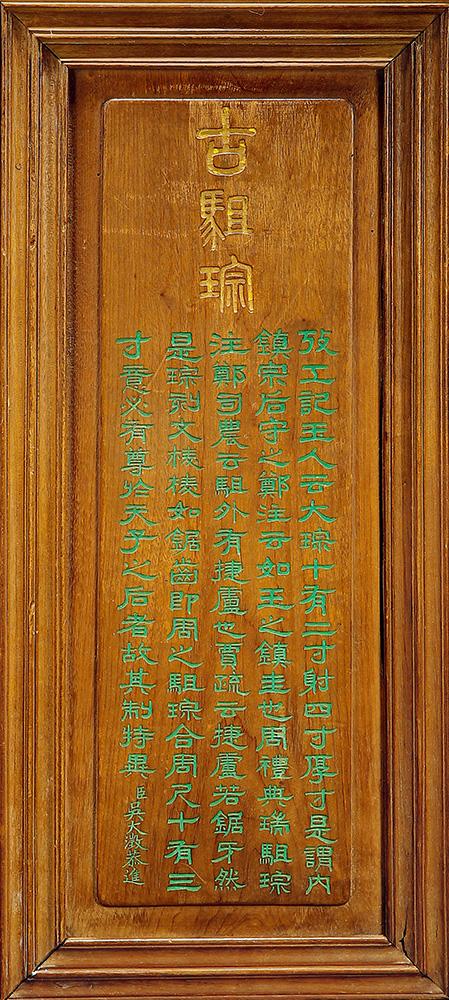 古駔琮
攷工記玉人云大琮十有二寸射四寸厚寸是謂內
鎮宗后守之鄭注云如王之鎮圭也周禮典瑞駔琮
注鄭司農云駔外有捷盧也賈疏云捷盧若鋸牙然
是琮刻文棱棱如鋸齒即周之駔琮合周尺十有三
寸意必有尊於天子之后者故其制特異
臣吳大澂恭進